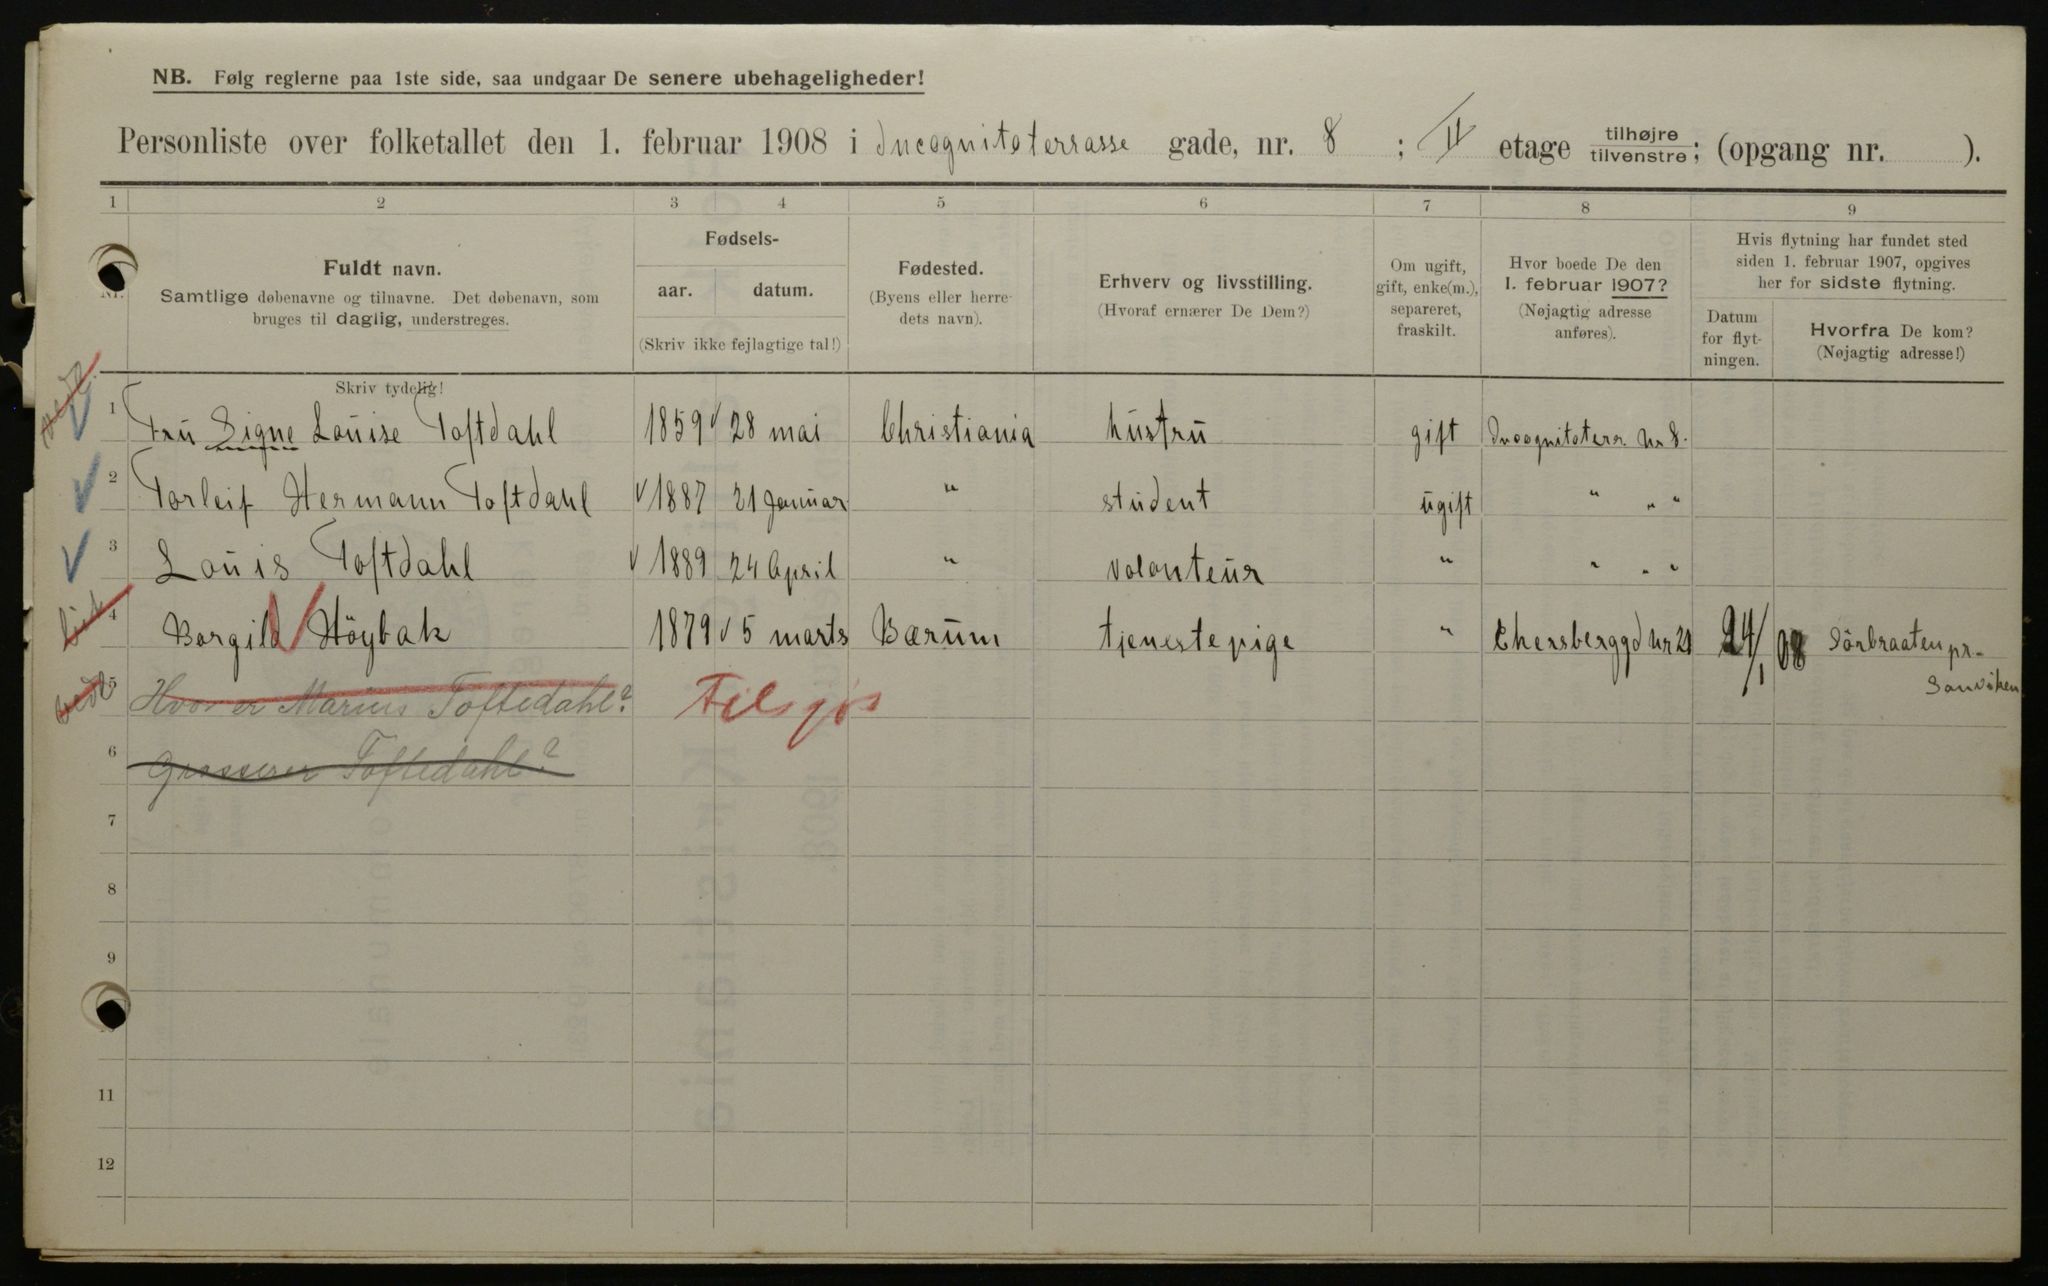 NB. Følg reglerne paa 1ste side, saa undgaar De senere ubehageligheder!
Personliste over folketallet den 1. februar 1908 i Incognitoterrasse gade, nr. 8 ; II etage tilhøjre tilvenstre; (opgang nr. ).
1 2 3 4 5 6 7 8 9
Nr.
Fuldt navn.
Samtlige døbenavne og tilnavne. Det døbenavn, som
bruges til daglig, understreges.
Skriv tydelig!
Fødsels-
aar. datum.
(Skriv ikke fejlagtige tal!)
Fødested.
(Byens eller herre-
dets navn).
Erhverv og livsstilling.
(Hvoraf ernærer De Dem?)
Om ugift,
gift, enke(m.),
separeret,
fraskilt.
Hvor boede De den
1. februar 1907?
(Nøjagtig adresse
anføres).
Hvis flytning har fundet sted
siden 1. februar 1907, opgives
her for sidste flytning.
Datum
for flyt-
ningen.
Hvorfra De kom?
(Nøjagtig adresse!)
1 Fru Signe Louise Toftdahl 1859 28 mai Christiania hustru gift Incognitoterr. Nr 8.
2 Torleif Hermann Toftdahl 1887 21 Januar " student ugift " " "
3 Louis Toftdahl 1889 24 April " volonteur " " " "
4 Borgild Höybak 1879 5 marts Bærum tjenestepige " Ekersberggd Nr 21 24/1 08 Sörbraaten pr.
Sanviken
5 Hvor er Marius Toftedahl? Tilsjøs
6 Grosserer Toftedahl?
7
8
9
11
12